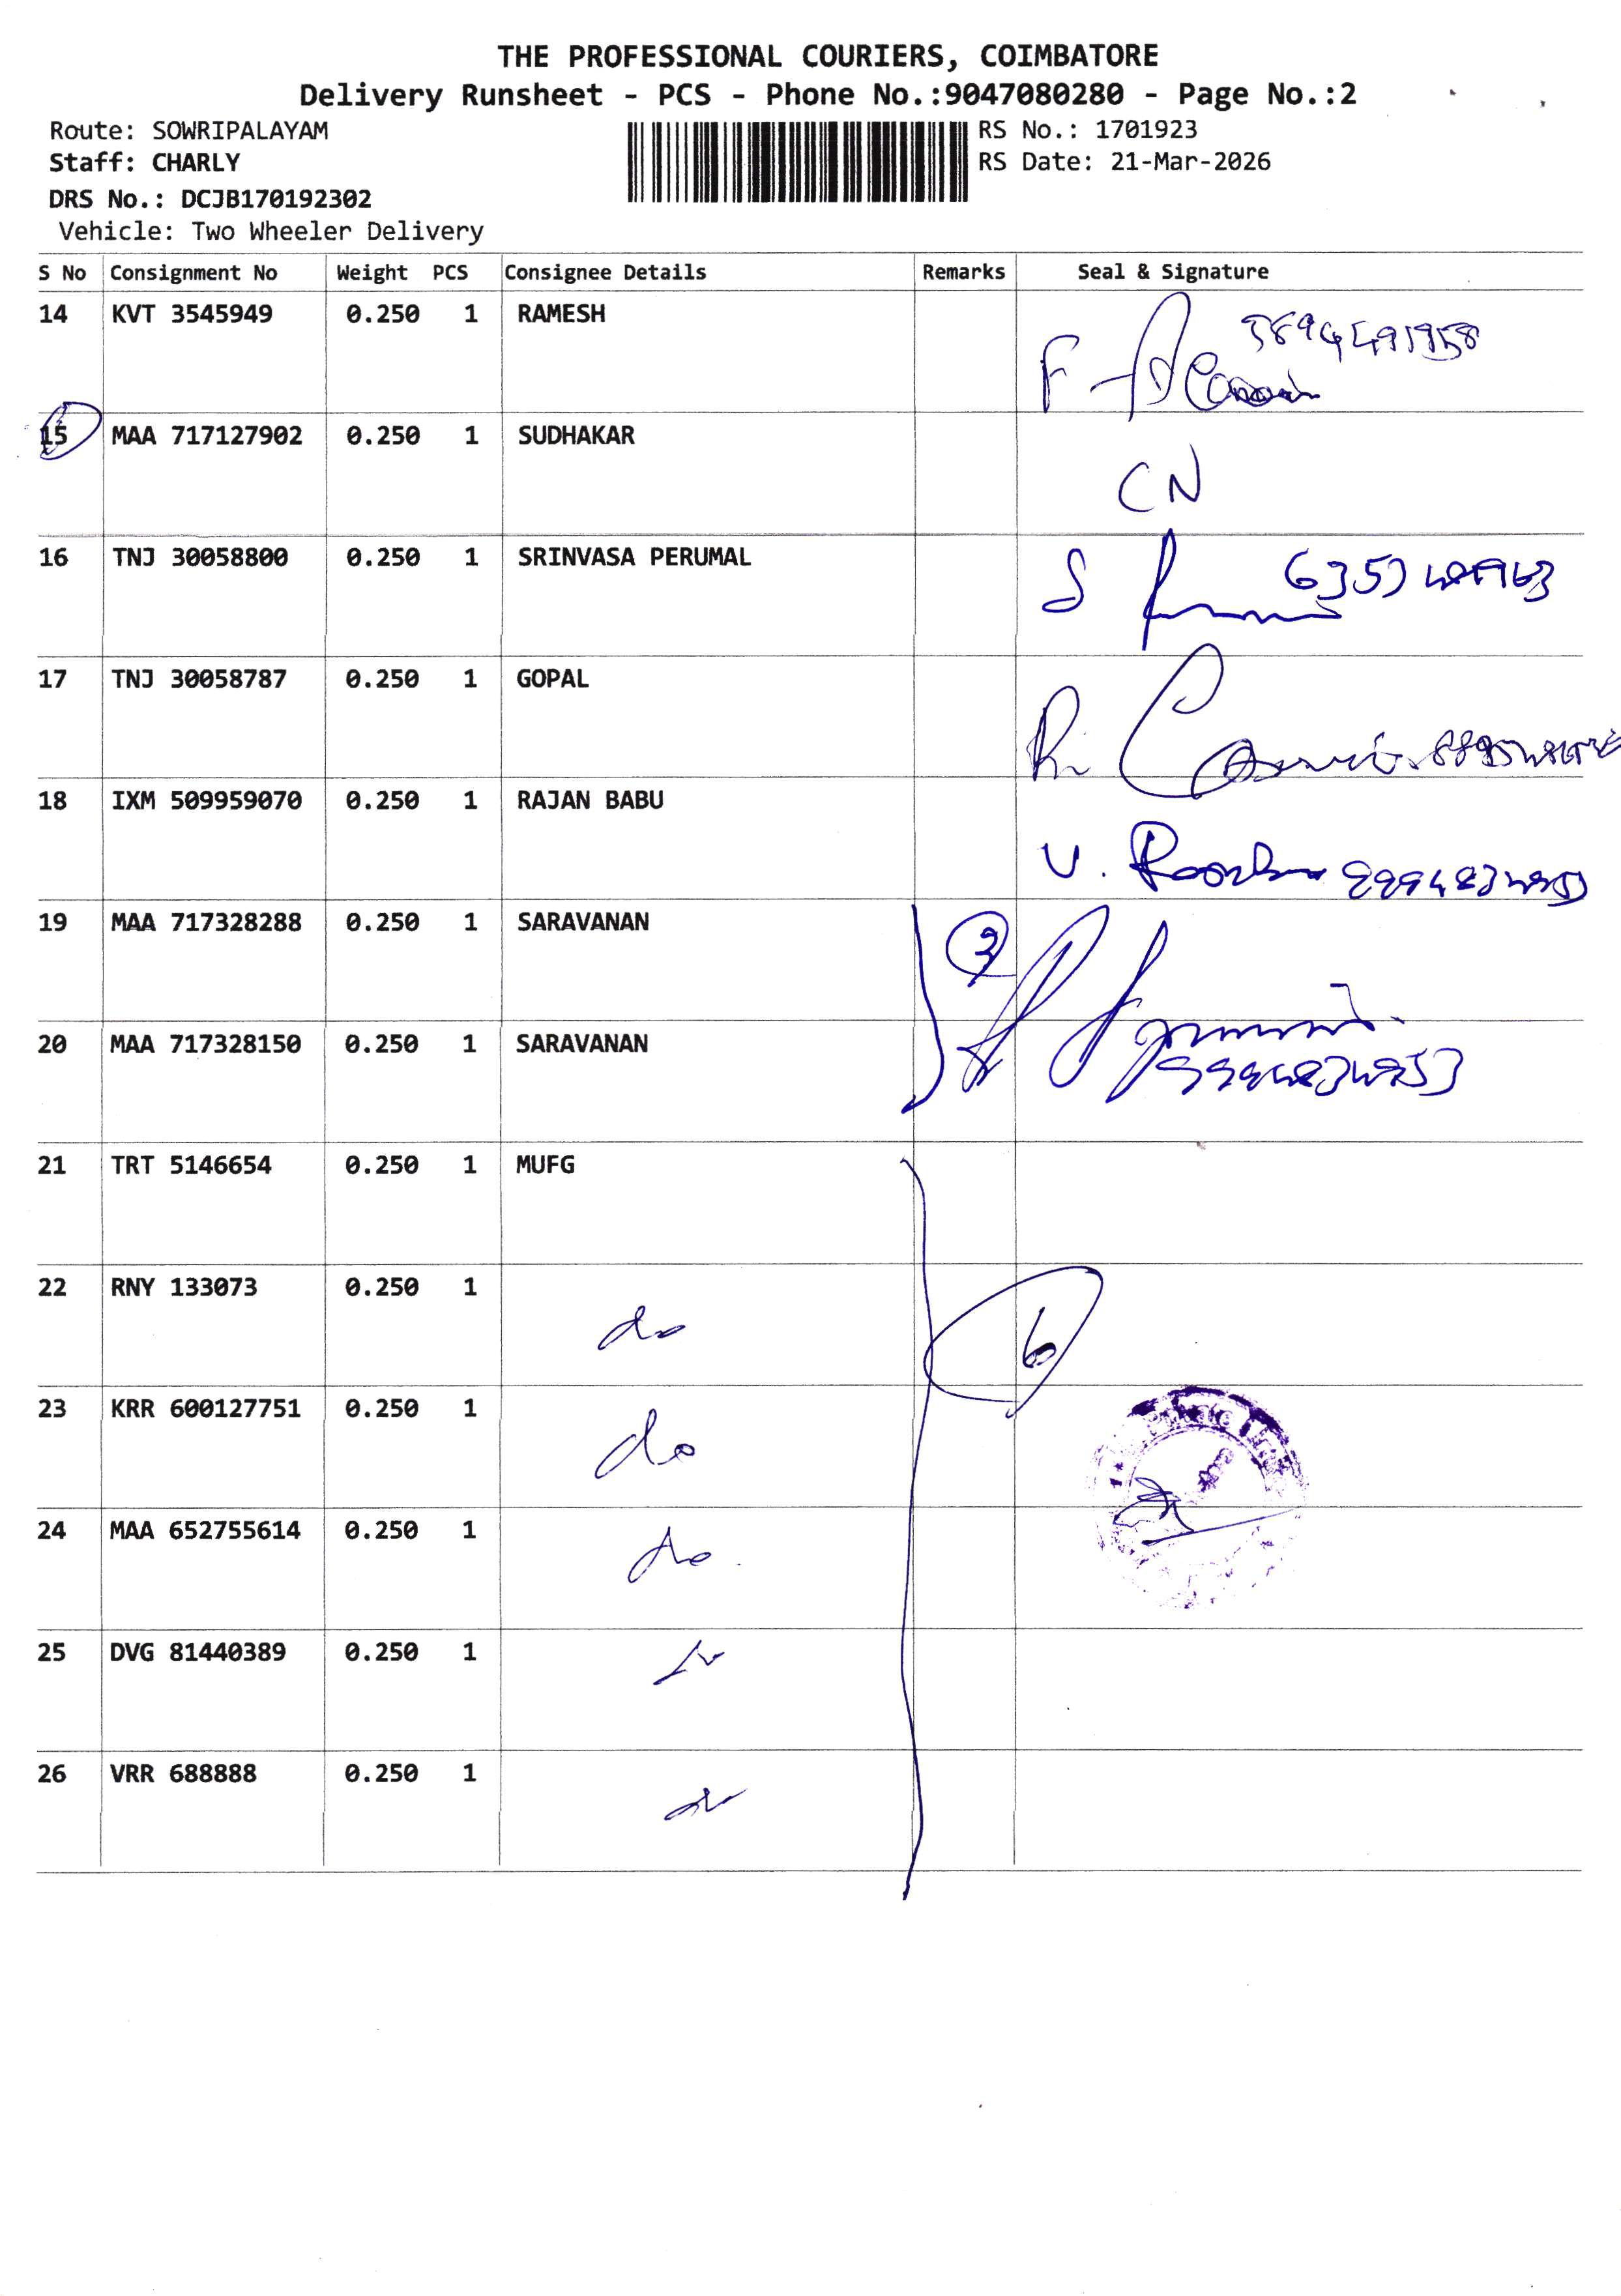 THE PROFESSIONAL COURIERS, COIMBATORE
Delivery Runsheet - PCS - Phone No.:9047080280 - Page No.:2
Route: SOWRIPALAYAM
RS No.: 1701923
Staff: CHARLY
RS Date: 21-Mar-2026
DRS No.: DCJB170192302
Vehicle: Two Wheeler Delivery
S No Consignment No Weight PCS Consignee Details Remarks Seal & Signature
14 KVT 3545949 0.250 1 RAMESH
15 MAA 717127902 0.250 1 SUDHAKAR
CN
16 TNJ 30058800 0.250 1 SRINVASA PERUMAL
17 TNJ 30058787 0.250 1 GOPAL
18 IXM 509959070 0.250 1 RAJAN BABU
19 MAA 717328288 0.250 1 SARAVANAN
20 MAA 717328150 0.250 1 SARAVANAN
21 TRT 5146654 0.250 1 MUFG
22 RNY 133073 0.250 1
do
6
23 KRR 600127751 0.250 1
do
24 MAA 652755614 0.250 1
do
25 DVG 81440389 0.250 1
26 VRR 688888 0.250 1